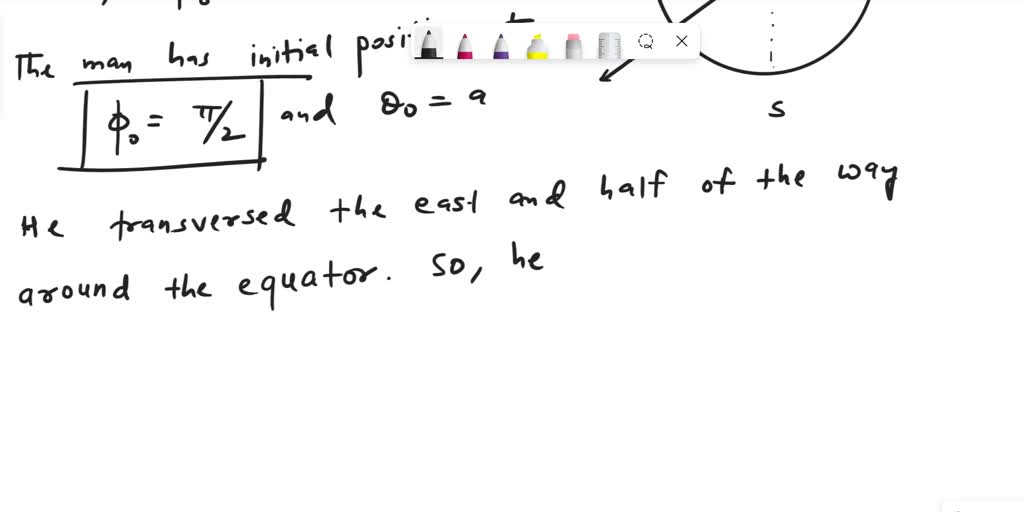 The man has initial
S
ϕ₀ = π/2 and θ₀ = a
He transversed the east and half of the way
around the equator. so, he